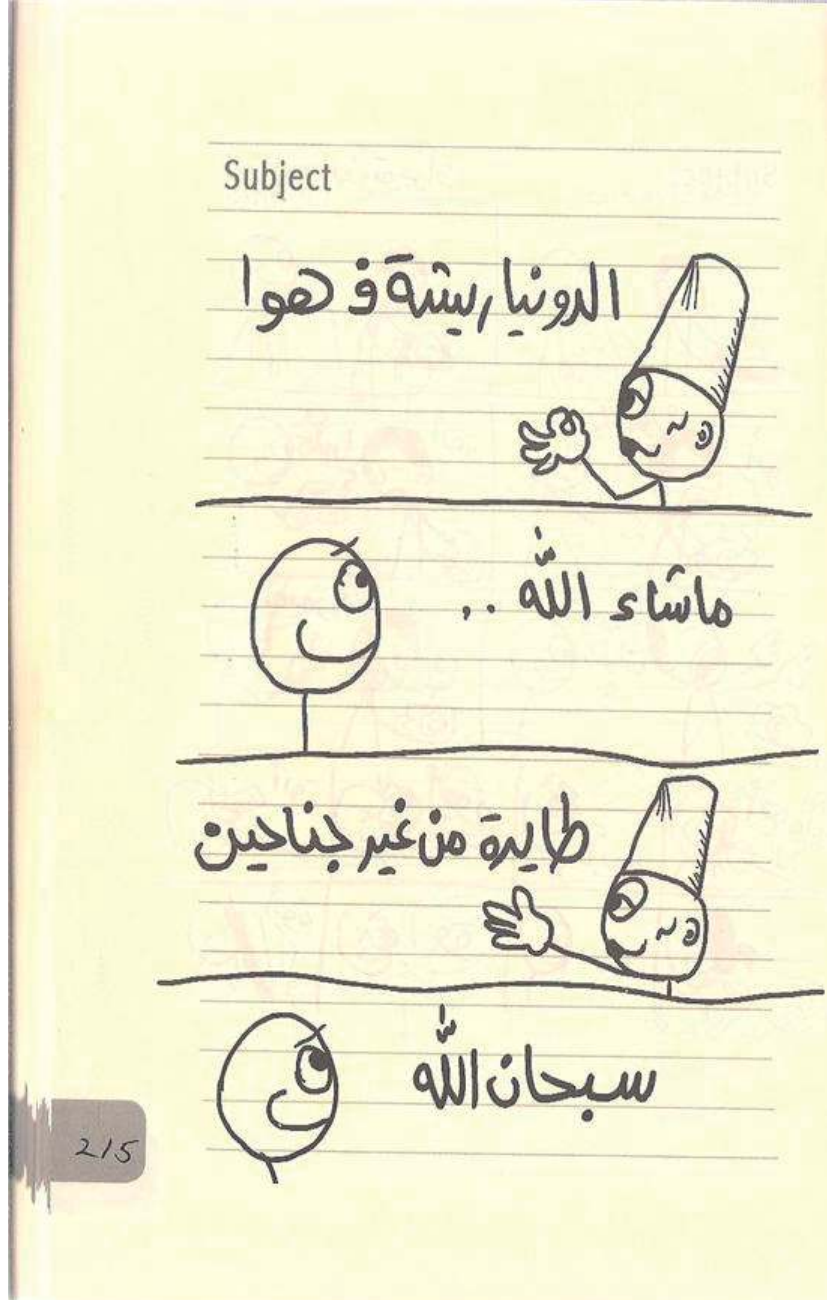 Subject
الدونيا ريشة ف هوا
ماشاء اللّه ..
طايرة من غير جناحين
سبحان اللّه
215